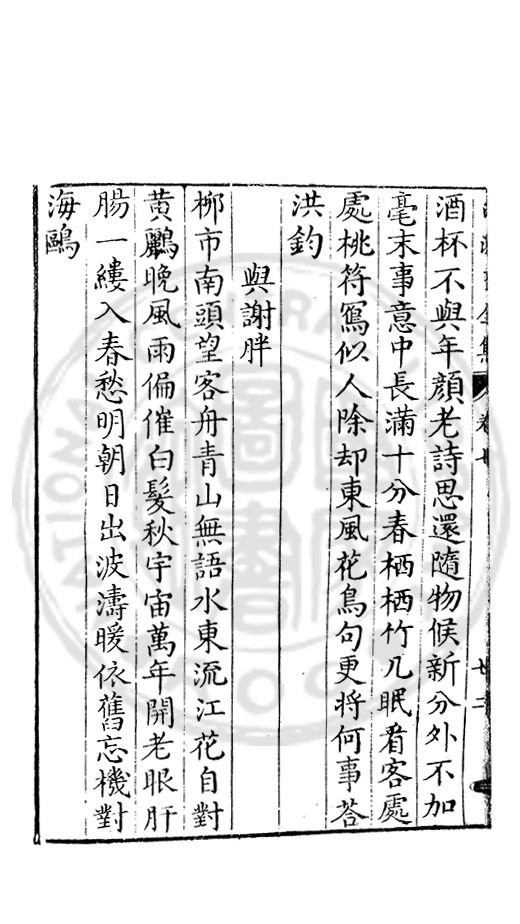 酒杯不與年顏老詩思還隨物候新分外不加
毫末事意中長滿十分春栖栖竹几眠看客處
處桃符寫似人除却東風花鳥句更將何事荅
洪鈞
與謝胖
桺市南頭望客舟青山無語水東流江花自對
黄鸝晚風雨偏催白髮秋宇宙萬年開老眼肝
腸一縷入春愁明朝日出波濤暖依舊忘機對
海鷗